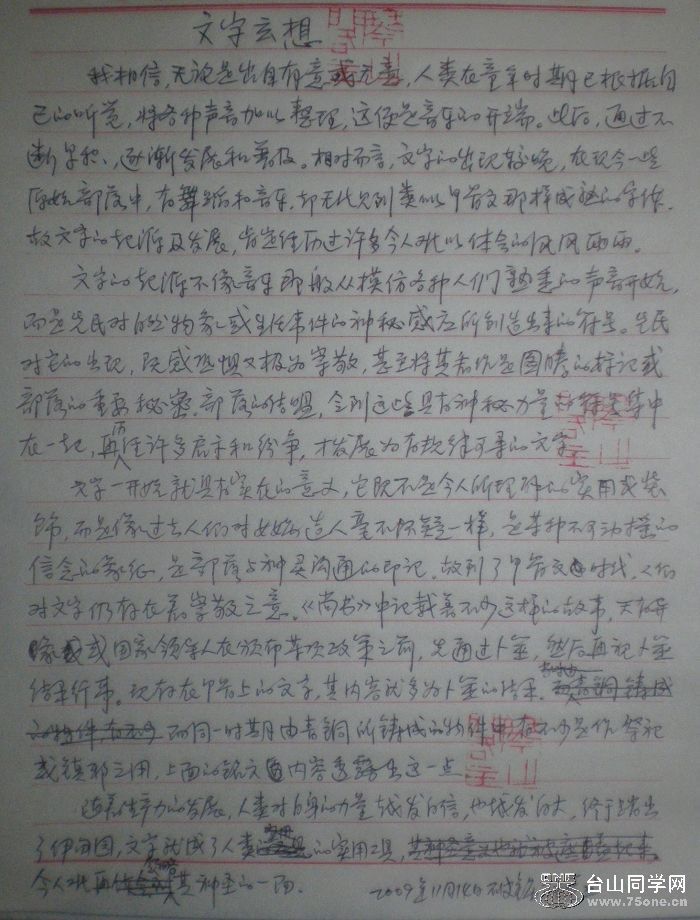 文字玄想
我相信,无论是出自有意或无意,人类在童年时期已根据自
己的听觉,将各种声音加以整理,这便是音乐的开端。此后,通过不
断累积、逐渐发展和普及。相对而言,文字的出现较晚,在现今一些
原始部落中,有舞蹈和音乐,却无比欠到类似甲骨文那样成熟的字体。
故文字的起源及发展,肯定经历过许多令人难以体会的风风雨雨。
文字的起源不像音乐那般从模仿各种人们熟悉的声音开始,
而是先民对自然物象或生活事件的神秘感应所创造出来的符号。先民
对它的出现,既感恐惧又极为崇敬,甚至将其看作是图腾的标记或
部落的重要秘密。部落的结盟,会则这些具有神秘力量的符号集中
在一起,再历经许多启示和纷争,才发展为有规律可寻的文字。
文字一开始就具有实在的意义,它既不是今人所理解的实用或装
饰,而是像过去人们对女娲造人毫不怀疑一样,是某种不可动摇的
信念的象征,是部落与神灵沟通的印记。故到了甲骨文时代,人们
对文字仍存在着崇敬之意。《尚书》中记载着不少这样的故事,天有异
象或国家领导人在颁布某项政策之前,先通过卜筮,然后再视卜筮
结果行事。现存在甲骨上的文字,其内容就多为卜筮的结果。
而同一时期由青铜所铸成的物件中,有不少是作祭祀
或镇邪之用,上面的铭文内容透露出这一点。
随着生产力的发展,人类对自身的力量越发自信,也越发自大,终于踏出
了伊甸园,文字就成了人类的实用工具,
令人难再其神圣的一面。
2009年11月14日
台山同学网
www.75one.cn